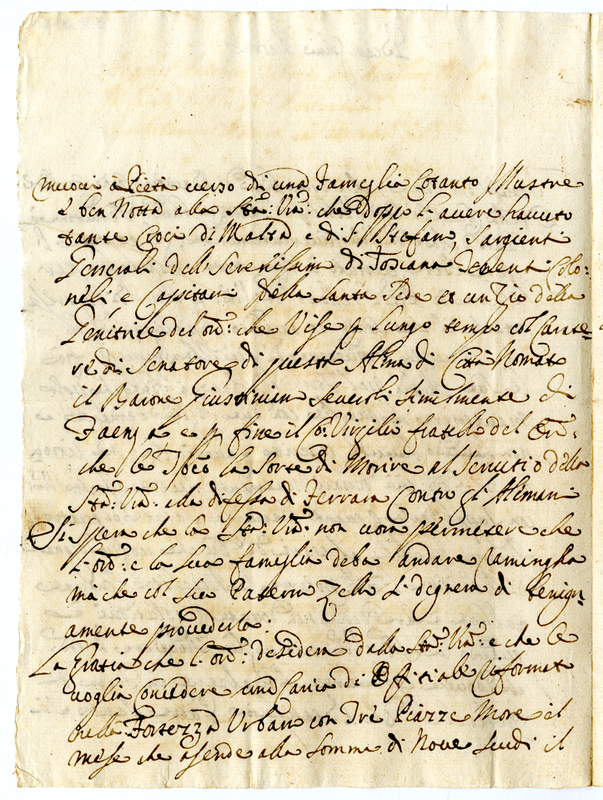 muoua à Pietà uerso di una Fameglia Cotanto Illustre
e ben Notta alla Stà: Vrà: che Doppo l'auere hauuto
tante Croci di Malta e di S: Stefano, Sargienti
Generali del Serenissimo di Toscana Tenenti Colo=
neli, e Capitani della Santa Sede et un Zio della
Genitrice del orè: che Visse p lungo tempo col Carate=
re di Senatore di questa Alma Città Nomato
il Barone Giustinian Seueroli similmente di
Faenza e p fine il Virgilio fratello del Orè:
che le Tocò la Sorte di Morire al Seruitio della
Stà: Vrà: alla difessa di Ferrara Contro gl'Alemani
Si Spera che la Stà: Vrà: non uora permetere che
l'orè: e la sua fameglia deba andare ramingha
mà che col suo Paterno Zello si degnera di benign=
amente prouederla:
La Gratia che l'orè: desidera dalla Stà: Vrà: e che le
uoglia Concedere una Carica di Offitiale Riformato
nella Fortezza Urbano con Trè Piazze More il
mese che asende alla Somma di Noue Scudi il